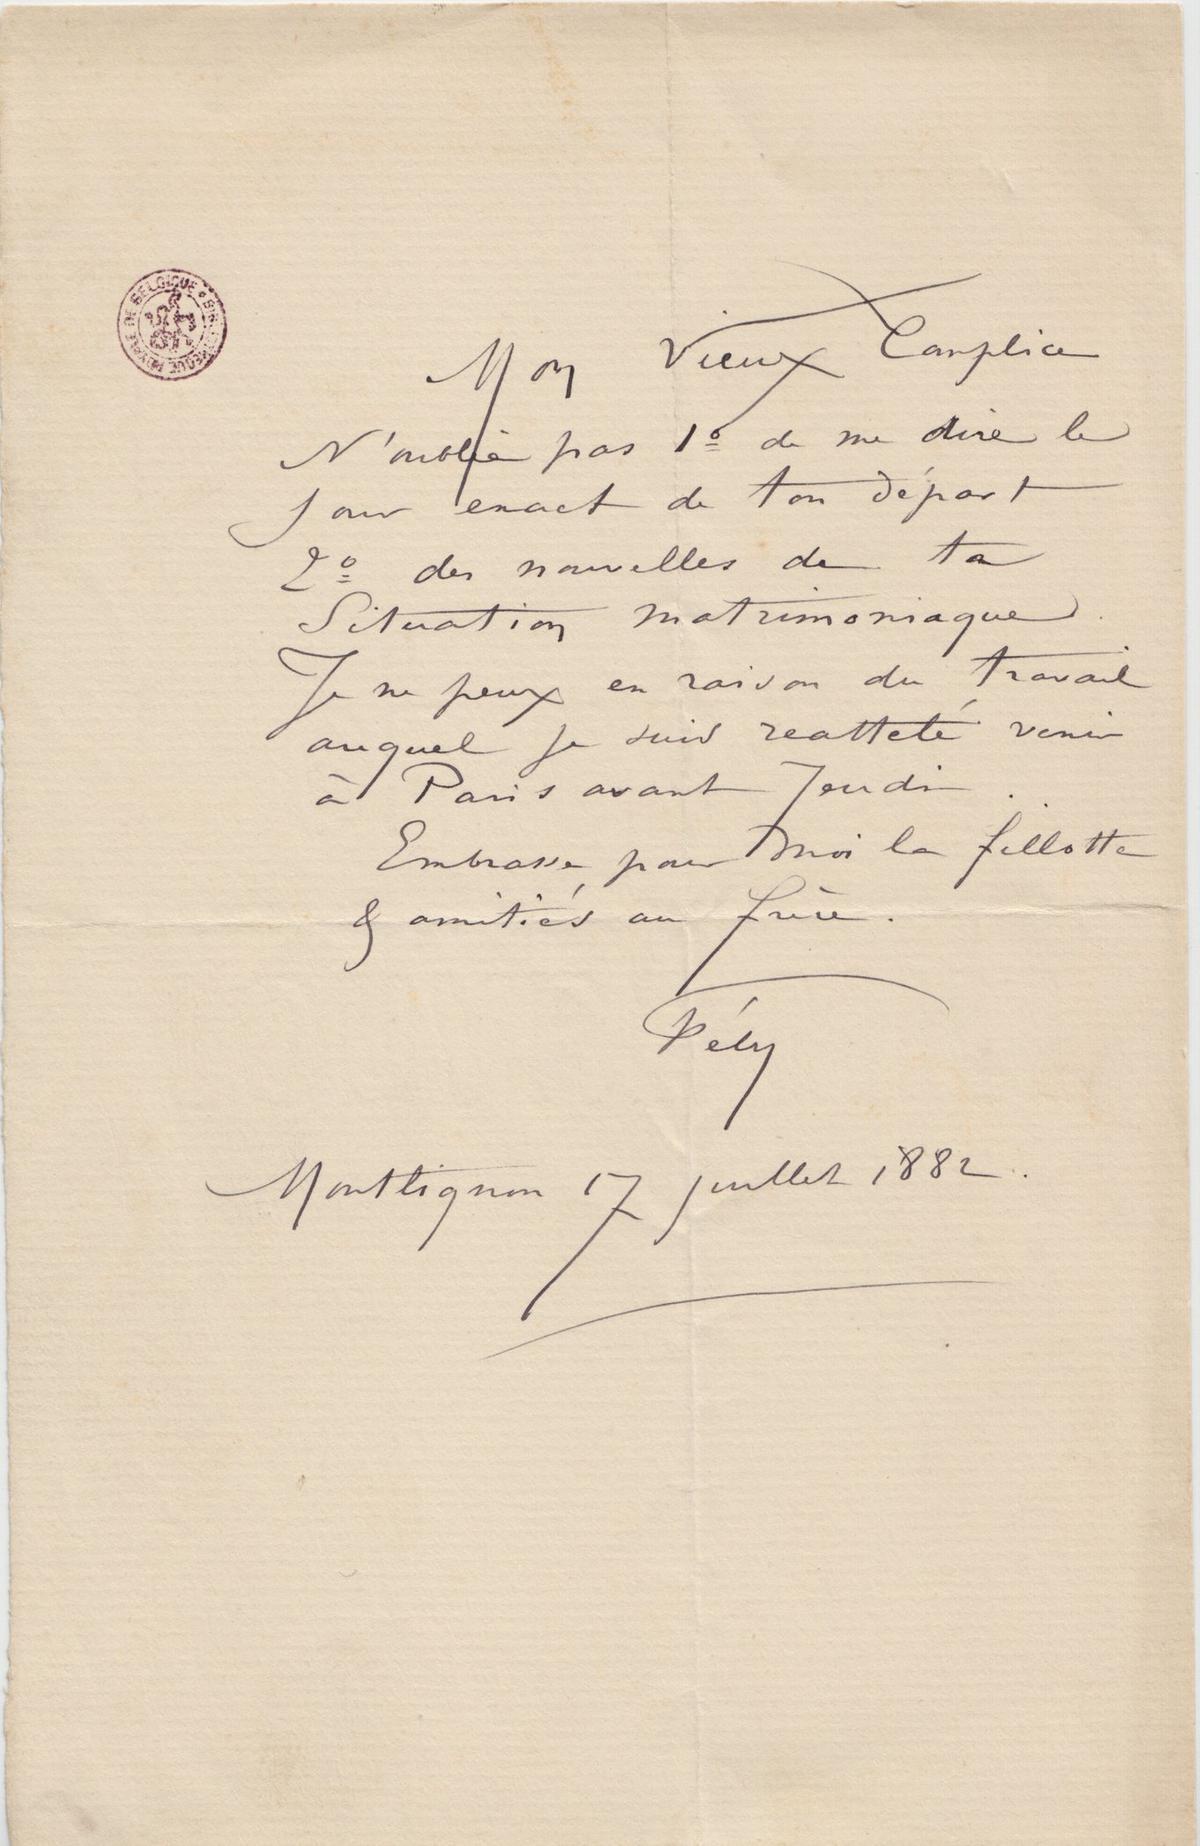 BIBLIOTHEQUE ROYALE DE BELGIQUE
Mon Vieux Complice
N'oublie pas 1º de me dire le
jour exact de ton départ
2º des nouvelles de ta
Situation matrimoniaque.
Je ne peux en raison du travail
auquel je suis reattelé venir
à Paris avant Jeudi.
Embrasse pour moi la fillotte
& amitiés au frère.
Fély
Montlignon 17 juillet 1882.